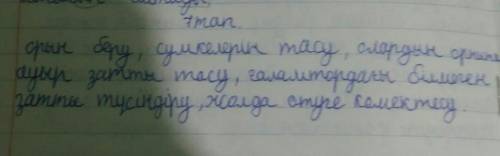 7тап.
орын беру, сумкелерін тасу, олардын
ауыр затты тасу, ғаламтордағы білмеген
затты түсіндіру, жолда өтуге көмектесу.